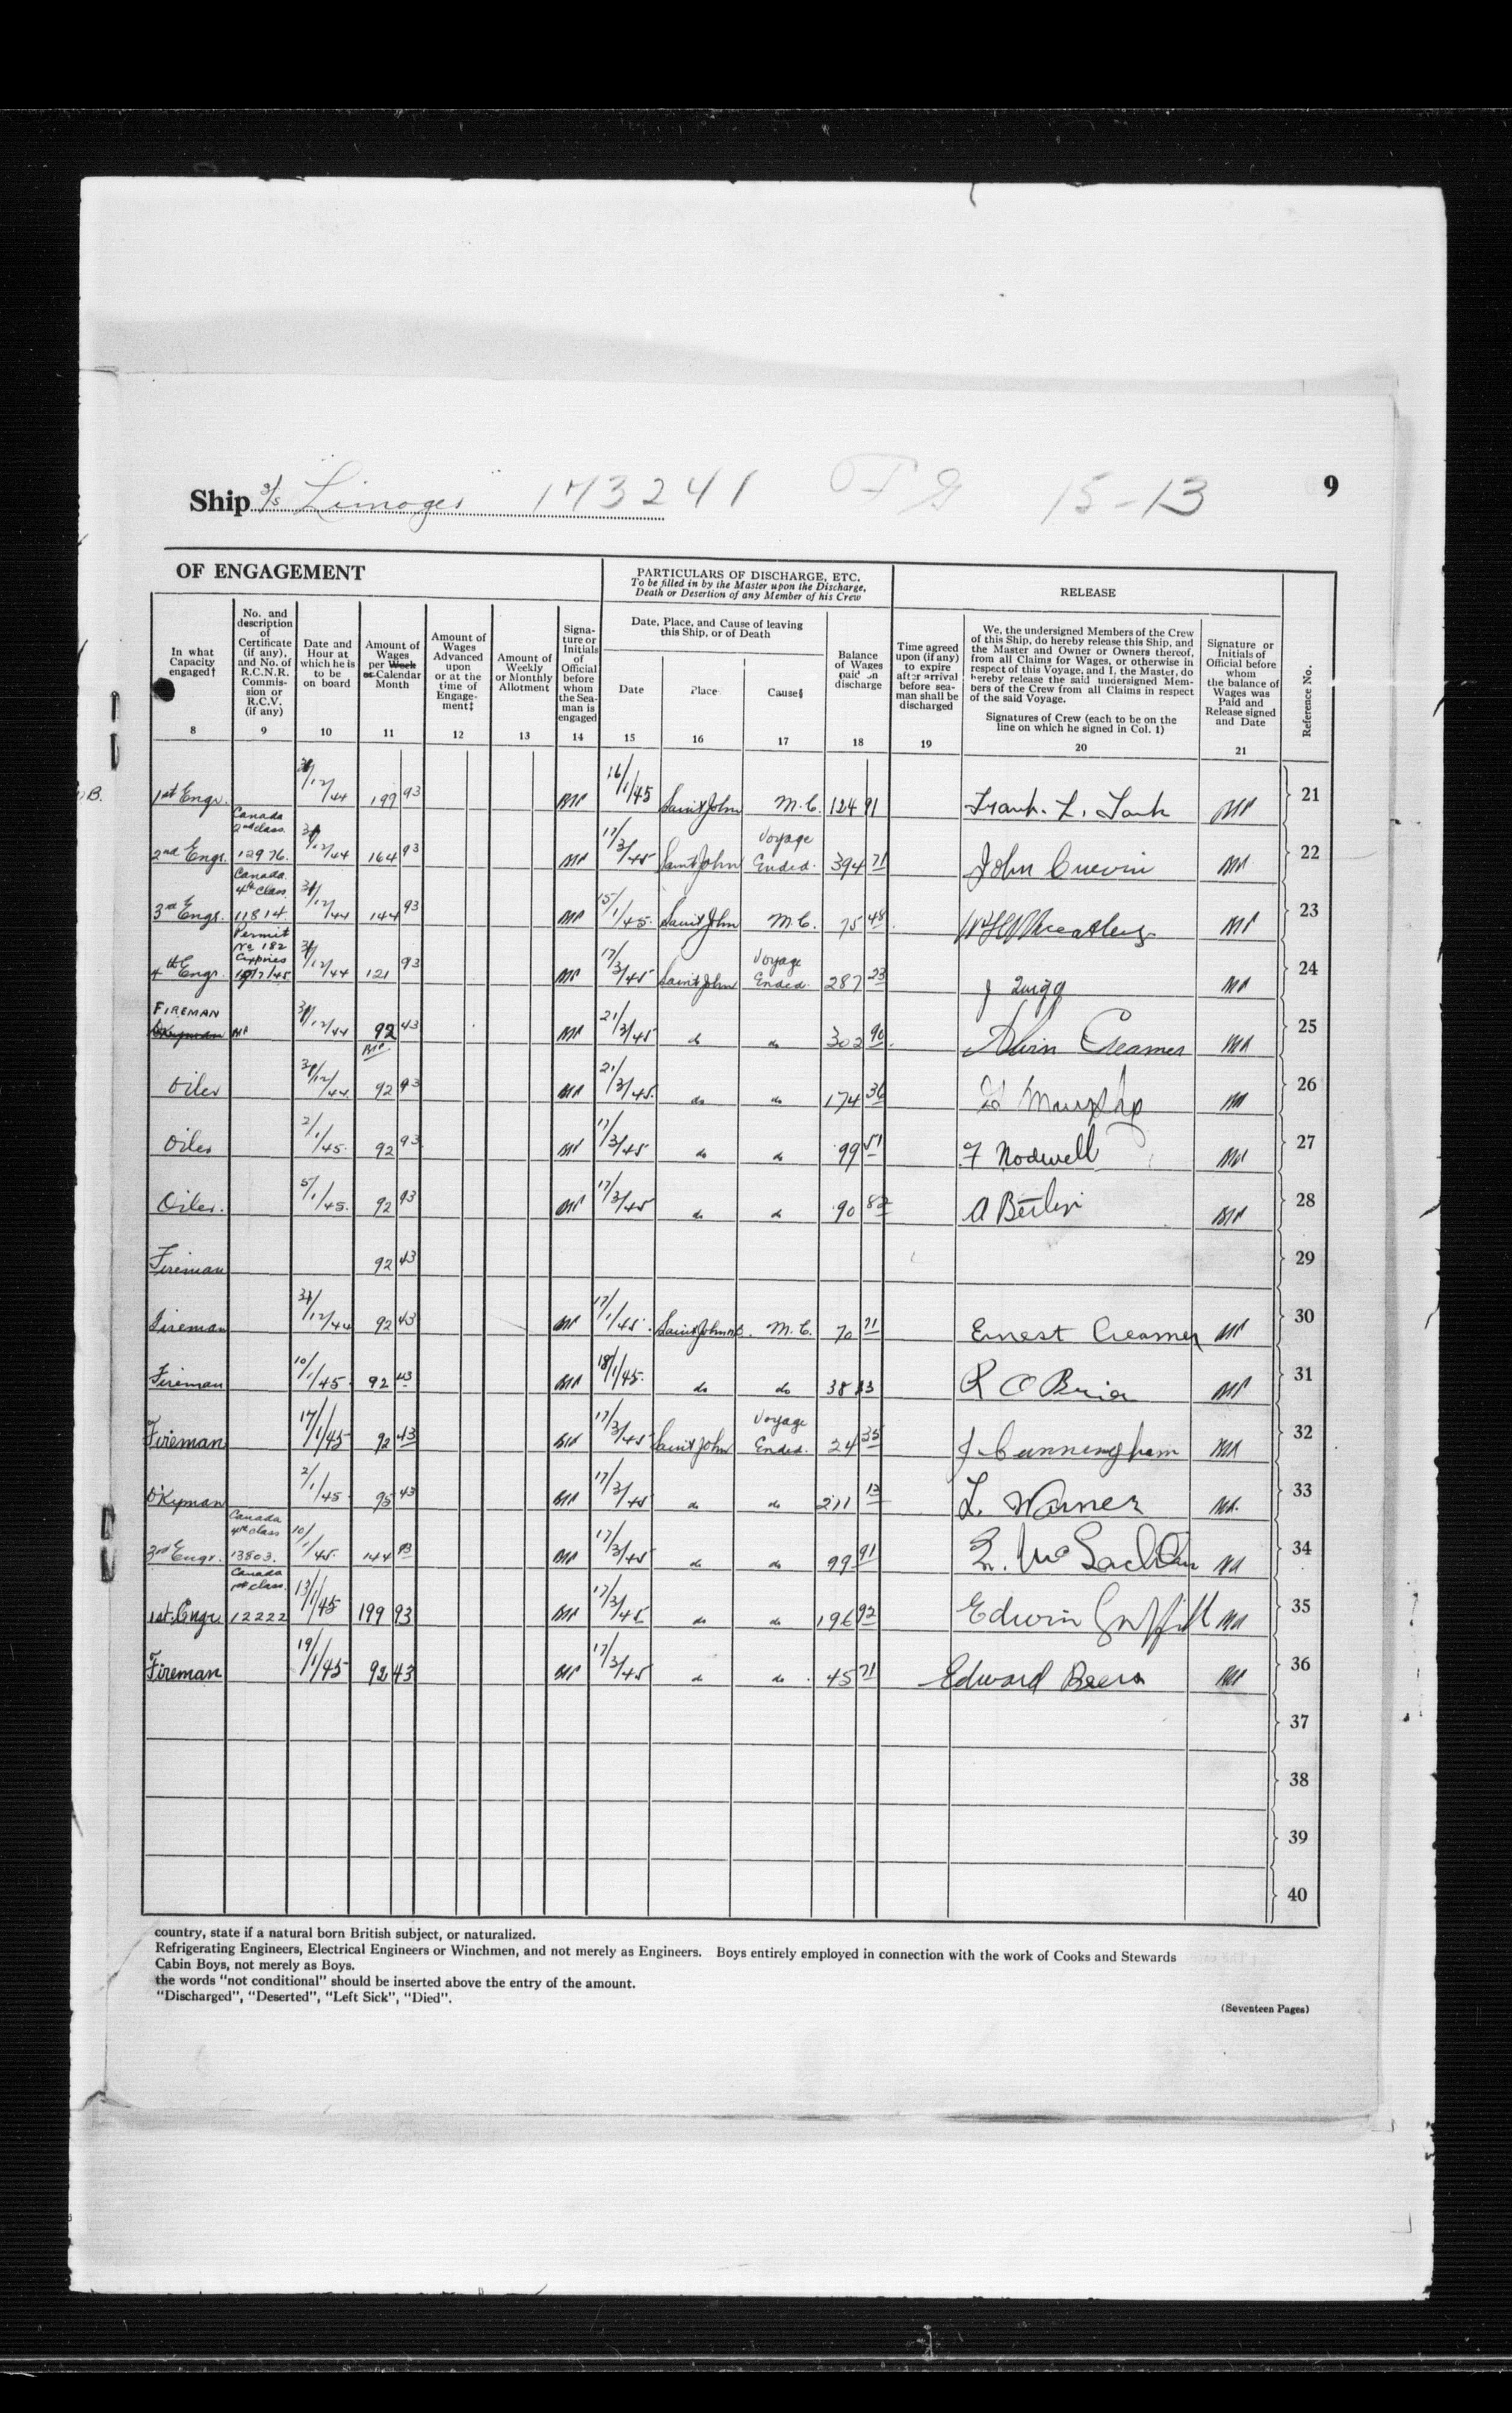 Ship S/S Limoges 173241 15-13 9
OF ENGAGEMENT
PARTICULARS OF DISCHARGE, ETC.
To be filled in by the Master upon the Discharge,
Death or Desertion of any Member of his Crew
RELEASE
In what
Capacity
engaged†
8
No. and
description
of
Certificate
(if any),
and No. of
R.C.N.R.
Commis-
sion or
R.C.V.
(if any)
9
Date and
Hour at
which he is
to be
on board
10
Amount of
Wages
per Week
or Calendar
Month
11
Amount of
Wages
Advanced
upon
or at the
time of
Engage-
ment‡
12
Amount of
Weekly
or Monthly
Allotment
13
Signa-
ture or
Initials
of
Official
before
whom
the Sea-
man is
engaged
14
Date, Place, and Cause of leaving
this Ship, or of Death
Date
15
Place
16
Cause§
17
Balance
of Wages
paid on
discharge
18
Time agreed
upon (if any)
to expire
after arrival
before sea-
man shall be
discharged
19
We, the undersigned Members of the Crew
of this Ship, do hereby release this Ship, and
the Master and Owner or Owners thereof,
from all Claims for Wages, or otherwise in
respect of this Voyage, and I, the Master, do
hereby release the said undersigned Mem-
bers of the Crew from all Claims in respect
of the said Voyage.
Signatures of Crew (each to be on the
line on which he signed in Col. 1)
20
Signature or
Initials of
Official before
whom
the balance of
Wages was
Paid and
Release signed
and Date
21
Reference No.
1st Engr. /12/44 199 93 16/1/45 Saint John M.C. 124 91 Frank. L. 21
2nd Engr. Canada 2nd class. 12976. /12/44 164 93 17/3/45 Saint John Voyage Ended. 394 71 John 22
3rd Engr. Canada. 4th Class. 11814. /12/44 144 93 15/1/45. Saint John M.C. 75 48 23
4th Engr. Permit No 182 Expires /45 /12/44 121 93 17/3/45 Saint John Voyage Ended. 287 23 J Quigg 24
FIREMAN /12/44 92 43 21/3/45 do do 302 90 Alvin Creamer 25
Oiler /12/44 92 93 21/3/45. do do 174 36 Murphy 26
Oiler 2/1/45. 92 93 17/3/45 do do 99 51 F Nodwell 27
Oiler. 5/1/45. 92 93 17/3/45 do do 90 82 A 28
Fireman 92 43 29
Fireman /12/44 92 43 17/1/45. Saint John N.B. M.C. 70 71 Ernest Creamer 30
Fireman 10/1/45 92 43 18/1/45. do do 38 23 R O Brien 31
Fireman 17/1/45 92 43 17/3/45 Saint John Voyage Ended. 24 35 J Cunningham 32
D'Kyman 2/1/45. 95 43 17/3/45 do do 211 13 L. Warner 33
3rd Engr. Canada 4th class 13803. 10/1/45. 144 93 17/3/45 do do 99 91 34
1st. Engr. Canada 1st class. 12222 13/1/45 199 93 17/3/45 do do 196 92 Edwin 35
Fireman 19/1/45 92 43 17/3/45 do do 45 71 Edward Beers 36
37
38
39
40
country, state if a natural born British subject, or naturalized.
Refrigerating Engineers, Electrical Engineers or Winchmen, and not merely as Engineers. Boys entirely employed in connection with the work of Cooks and Stewards
Cabin Boys, not merely as Boys.
the words "not conditional" should be inserted above the entry of the amount.
"Discharged", "Deserted", "Left Sick", "Died".
(Seventeen Pages)